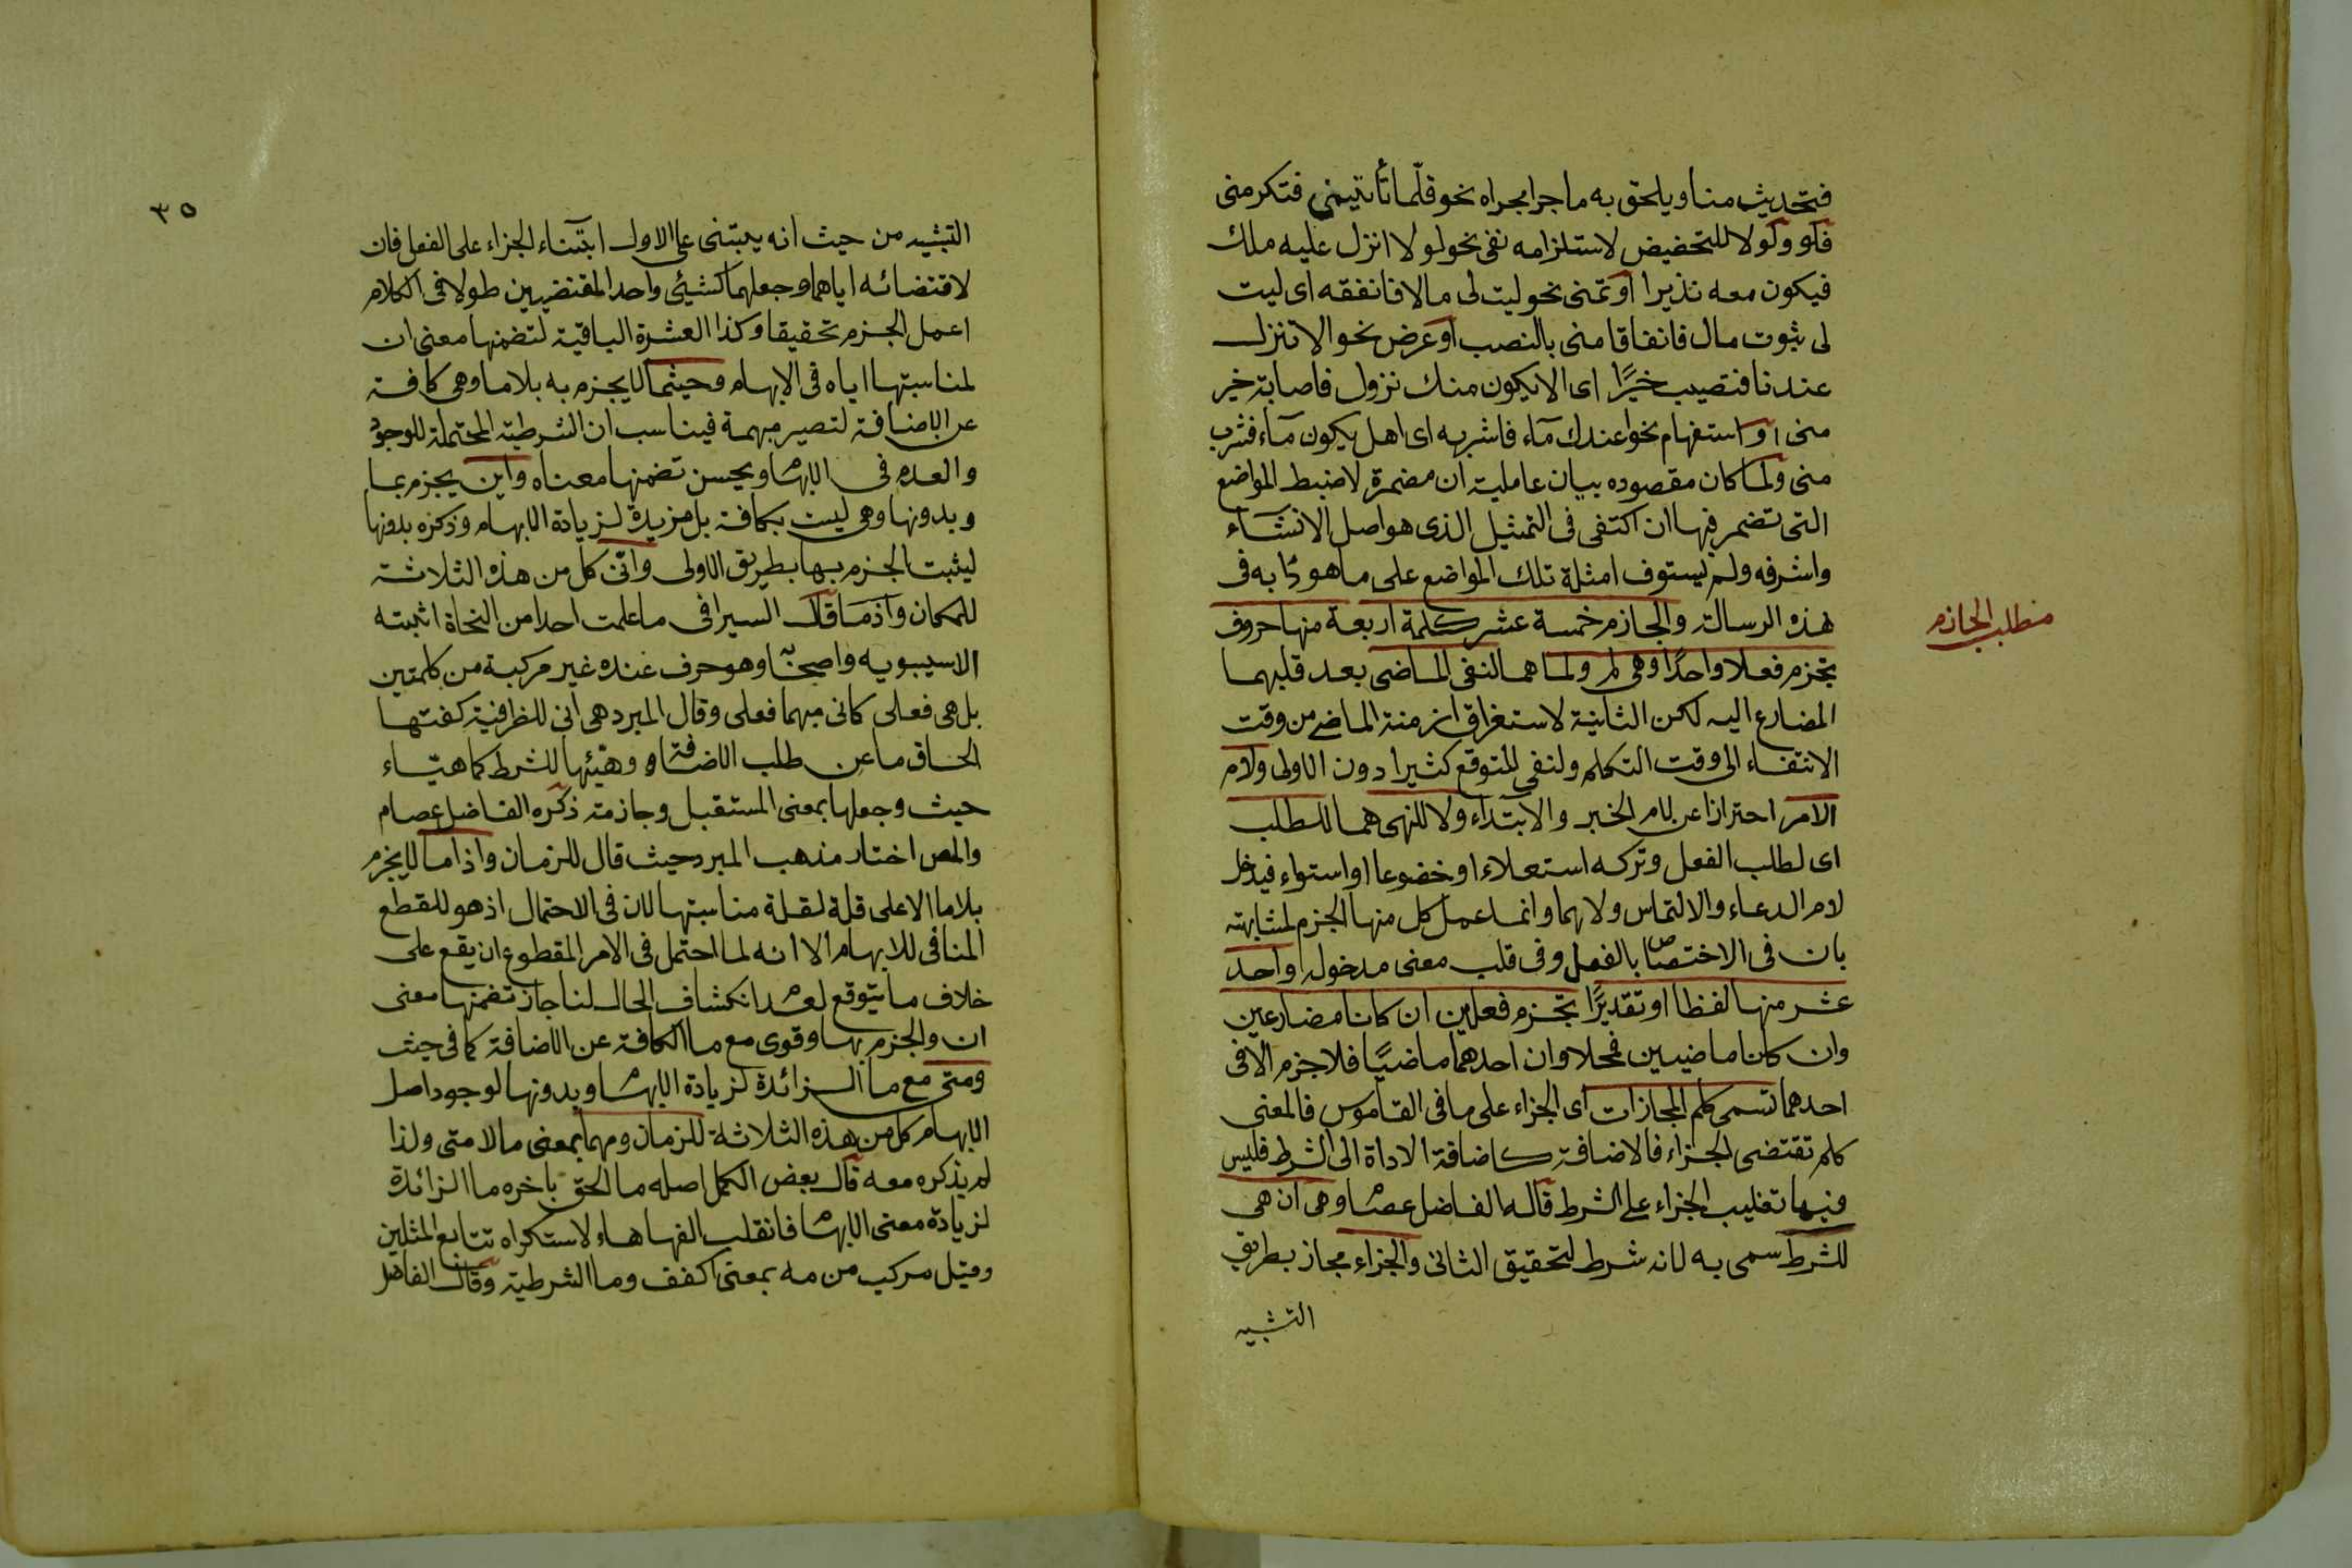 فتحديث منا ويلحق به ما جرا مجراه نحو قلّما تأتيني فتكرمنى
فلو ولولا للتحضيض لاستلزامه نفى نحو لولا انزل عليه ملك
فيكون معه نذيرا او تمنى نحو ليت لى مالا فانفقه اى ليت
لى ثبوت مال فانفاقا منى بالنصب او عرض نحو الا تنزل
عندنا فتصيب خيرًا اى الا يكون منك نزول فاصابة خير
منى او استفهام نحو اعندك مآء فاشربه اى اهل يكون مآء فشرب
منى ولما كان مقصوده بيان عاملية ان مضمرة لا ضبط المواضع
التى تضمر فيها ان اكتفى فى التمثيل الذى هو اصل الانشآء
واشرفه ولم يستوف امثلة تلك المواضع على ما هو دأبه فى
هذه الرسالة والجازم خمسة عشر كلمة اربعة منها حروف
مطلب الجازم
تجزم فعلا واحدًا وهى لم ولما هما لنفى الماضى بعد قلبهما
المضارع اليه لكن الثانية لاستغراق ازمنة الماضى من وقت
الانتفاء الى وقت التكلم ولنفى المتوقع كثيرا دون الاولى ولام
الامر احترازا عن لام الخبر والابتداء ولا للنهى هما للطلب
اى لطلب الفعل وتركه استعلاء او خضوعا او استواء فيدخل
لام الدعاء والالتماس ولا هما وانما عمل كل منها الجزم لمشابهته
بان فى الاختصاص بالفعل وفى قلب معنى مدخوله واحد
عشر منها لفظا او تقديرًا تجزم فعلين ان كانا مضارعين
وان كانا ماضيين فمحلا وان احدهما ماضيًا فلا جزم الا فى
احدهما تسمى كلم المجازات اى الجزاء على ما فى القاموس فالمعنى
كلم تقتضى الجزاء فالاضافة كاضافة الاداة الى الشرط فليس
فيها تغليب الجزاء على الشرط قاله الفاضل عصام وهى ان هى
للشرط سمى به لانه شرط لتحقيق الثانى والجزاء مجاز بطريق
التشبيه
٣٥
التشبيه من حيث انه يبتنى على الاول ابتناء الجزاء على الفعل فان
لاقتضائه اياهما وجعلهما كشيئى واحد المقتضيين طولا فى الكلام
اعمل الجزم تحقيقا وكذا العشرة الباقية لتضمنها معنى ان
لمناسبتها اياه فى الابهام وحيثما لا يجزم به بلا ما وهى كافة
عن الاضافة لتصير مبهمة فيناسب ان الشرطية المحتملة للوجود
والعدم فى الابهام ويحسن تضمنها معناه واين يجزم بما
وبدونها وهى ليست بكافة بل مزيدة لزيادة الابهام وذكره بدونها
ليثبت الجزم بها بطريق الاولى وانّى كل من هذه الثلاثة
للمكان واذما قال السيرافى ما علمت احدا من النحاة اثبته
الا سيبويه واصحابه وهو حرف عنده غير مركبة من كلمتين
بل هى فعلى كانى مهما فعلى وقال المبرد هى انى للظرفية كفتها
الحاق ما عن طلب الاضافة وهيئها للشرط كما هيّاء
حيث وجعلها بمعنى المستقبل وجازمة ذكره الفاضل عصام
والمص اختار مذهب المبرد حيث قال للزمان واذا ما لا يجزم
بلا ما الا على قلة لقلة مناسبتها لان فى الاحتمال اذ هو للقطع
المنافى للابهام الا انه لما احتمل فى الامر المقطوع ان يقع على
خلاف ما يتوقع لعدم انكشاف الحال لنا جاز تضمنها معنى
ان والجزم بها وقوى مع ما الكافة عن الاضافة كما فى حيث
ومتى مع ما الزائدة لزيادة الابهام وبدونها لوجود اصل
الابهام كل من هذه الثلاثة للزمان ومهما بمعنى ما لا متى ولذا
لم يذكره معه قال بعض الكمل اصله ما الحق باخره ما الزائدة
لزيادة معنى الابهام فانقلب الفها هاء لاستكراه تتابع المثلين
وقيل مركب من مه بمعنى اكفف وما الشرطية وقال الفاضل